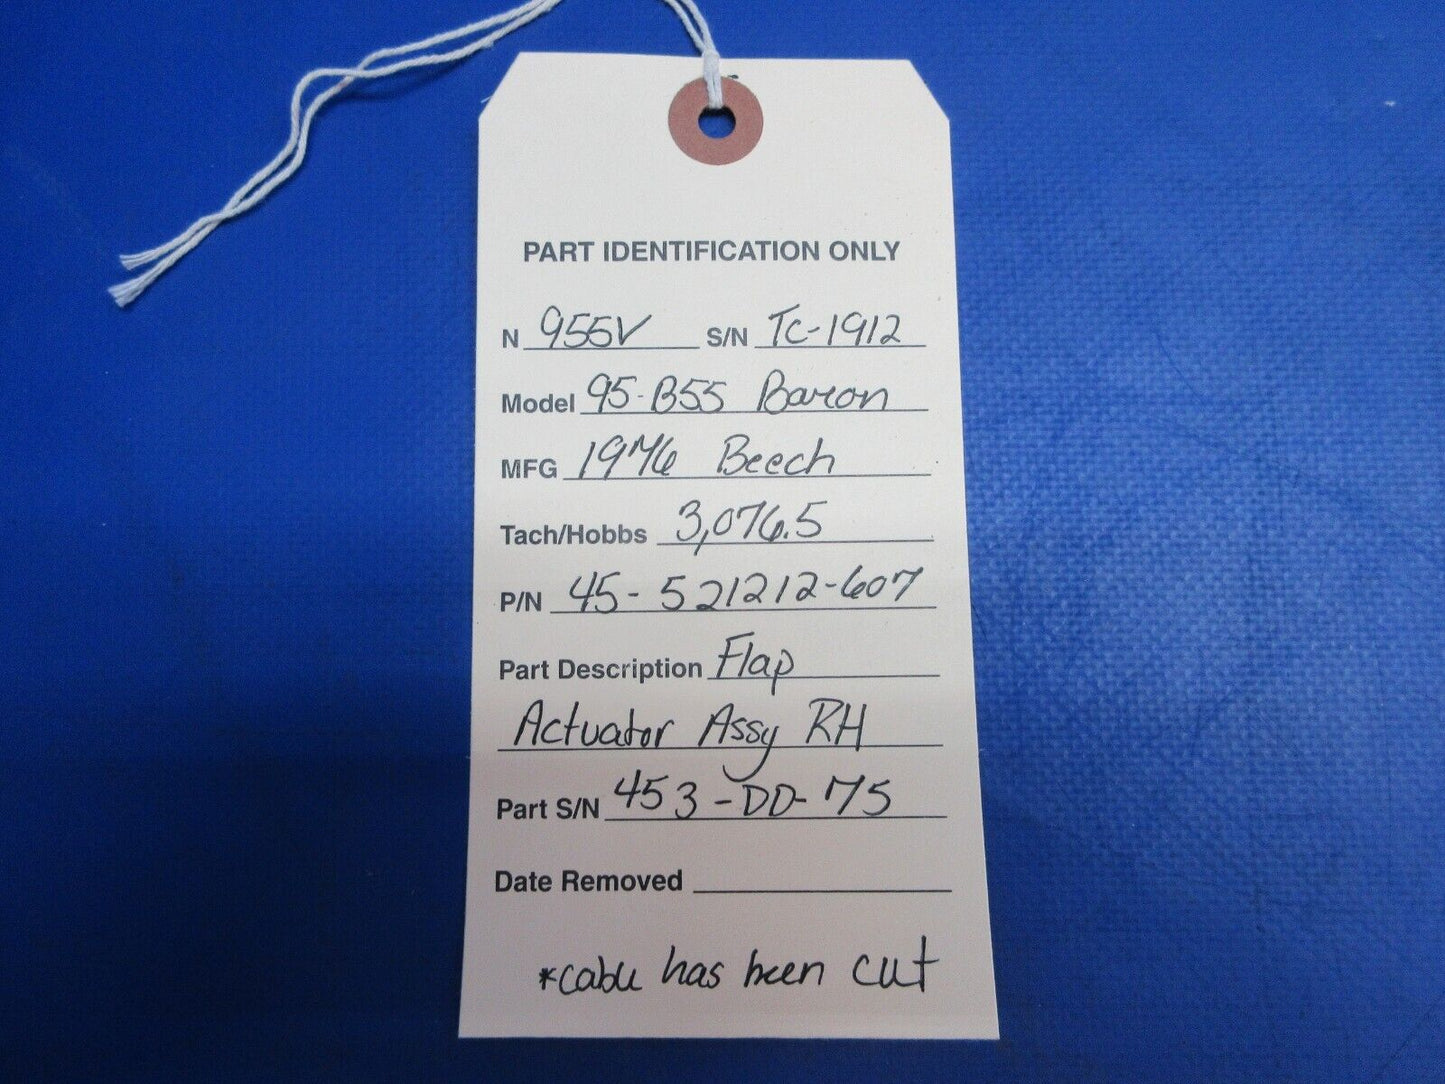 PART IDENTIFICATION ONLY
N 955V S/N TC-1912
Model 95-B55 Baron
MFG 1976 Beech
Tach/Hobbs 3,076.5
P/N 45-521212-607
Part Description Flap
Actuator Assy RH
Part S/N 453-DD-75
Date Removed
*cable has been cut